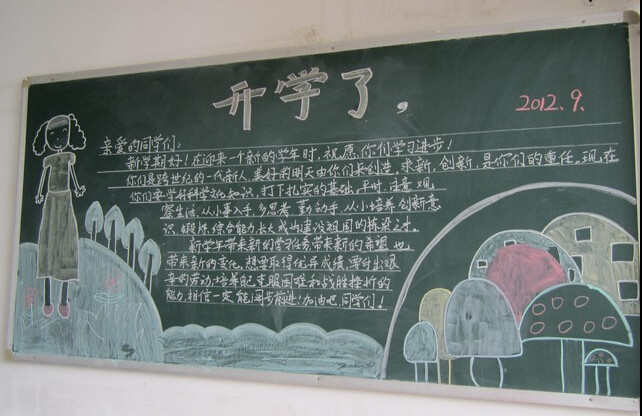 开学了，
2012.9.
亲爱的同学们：
新学期好！在迎来一个新的学年时，祝愿你们学习进步！
你们是跨世纪的一代新人，美好的明天由你们来创造。求新，创新，是你们的责任，现在
你们要学好科学文化知识，打下扎实的基础，平时注意观
察生活，从小事入手，多思考，勤动手，从小培养创新意
识，锻炼综合能力，长大成为建设祖国的栋梁之才。
新学年带来新的学习任务，带来新的希望，也
带来新的变化，想要取得优异成绩，要付出艰
辛的劳动，培养自己克服困难和战胜挫折的
能力，相信一定能同步前进！加油吧，同学们！